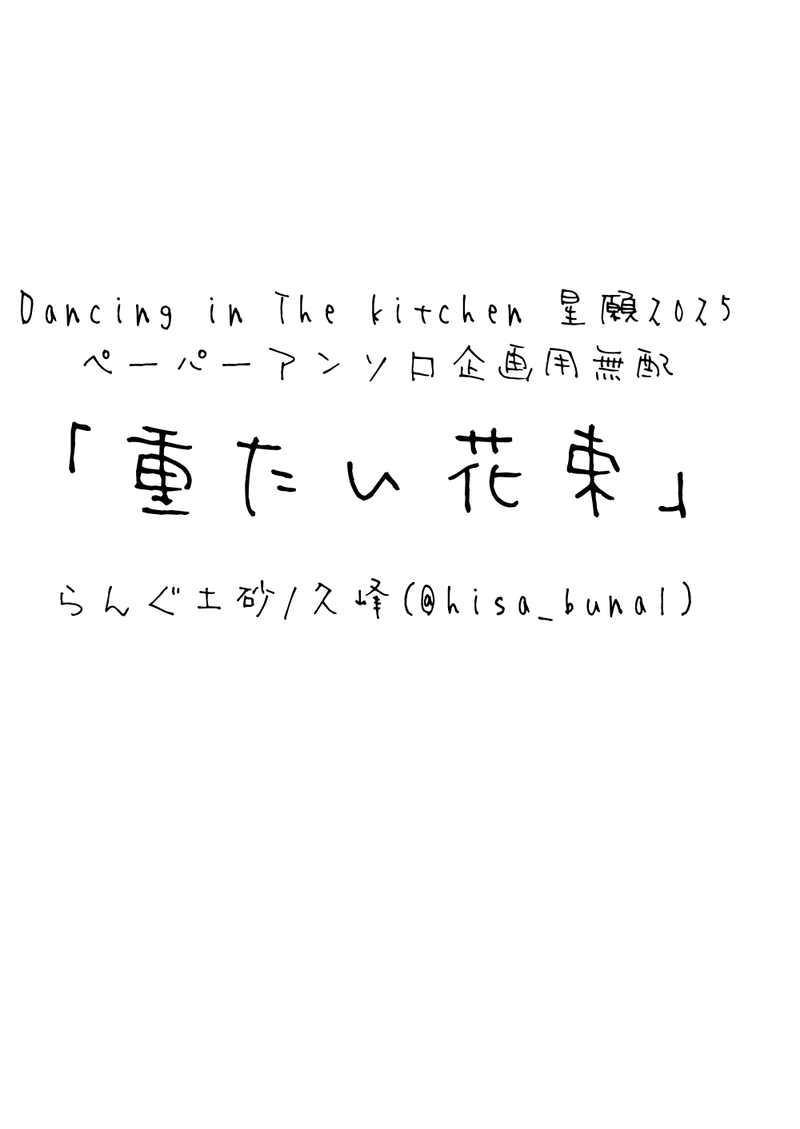 Dancing in The kitchen 星願2025
ペーパーアンソロ企画用無配
「重たい花束」
らんぐ土砂/久峰(@hisa_buna1)